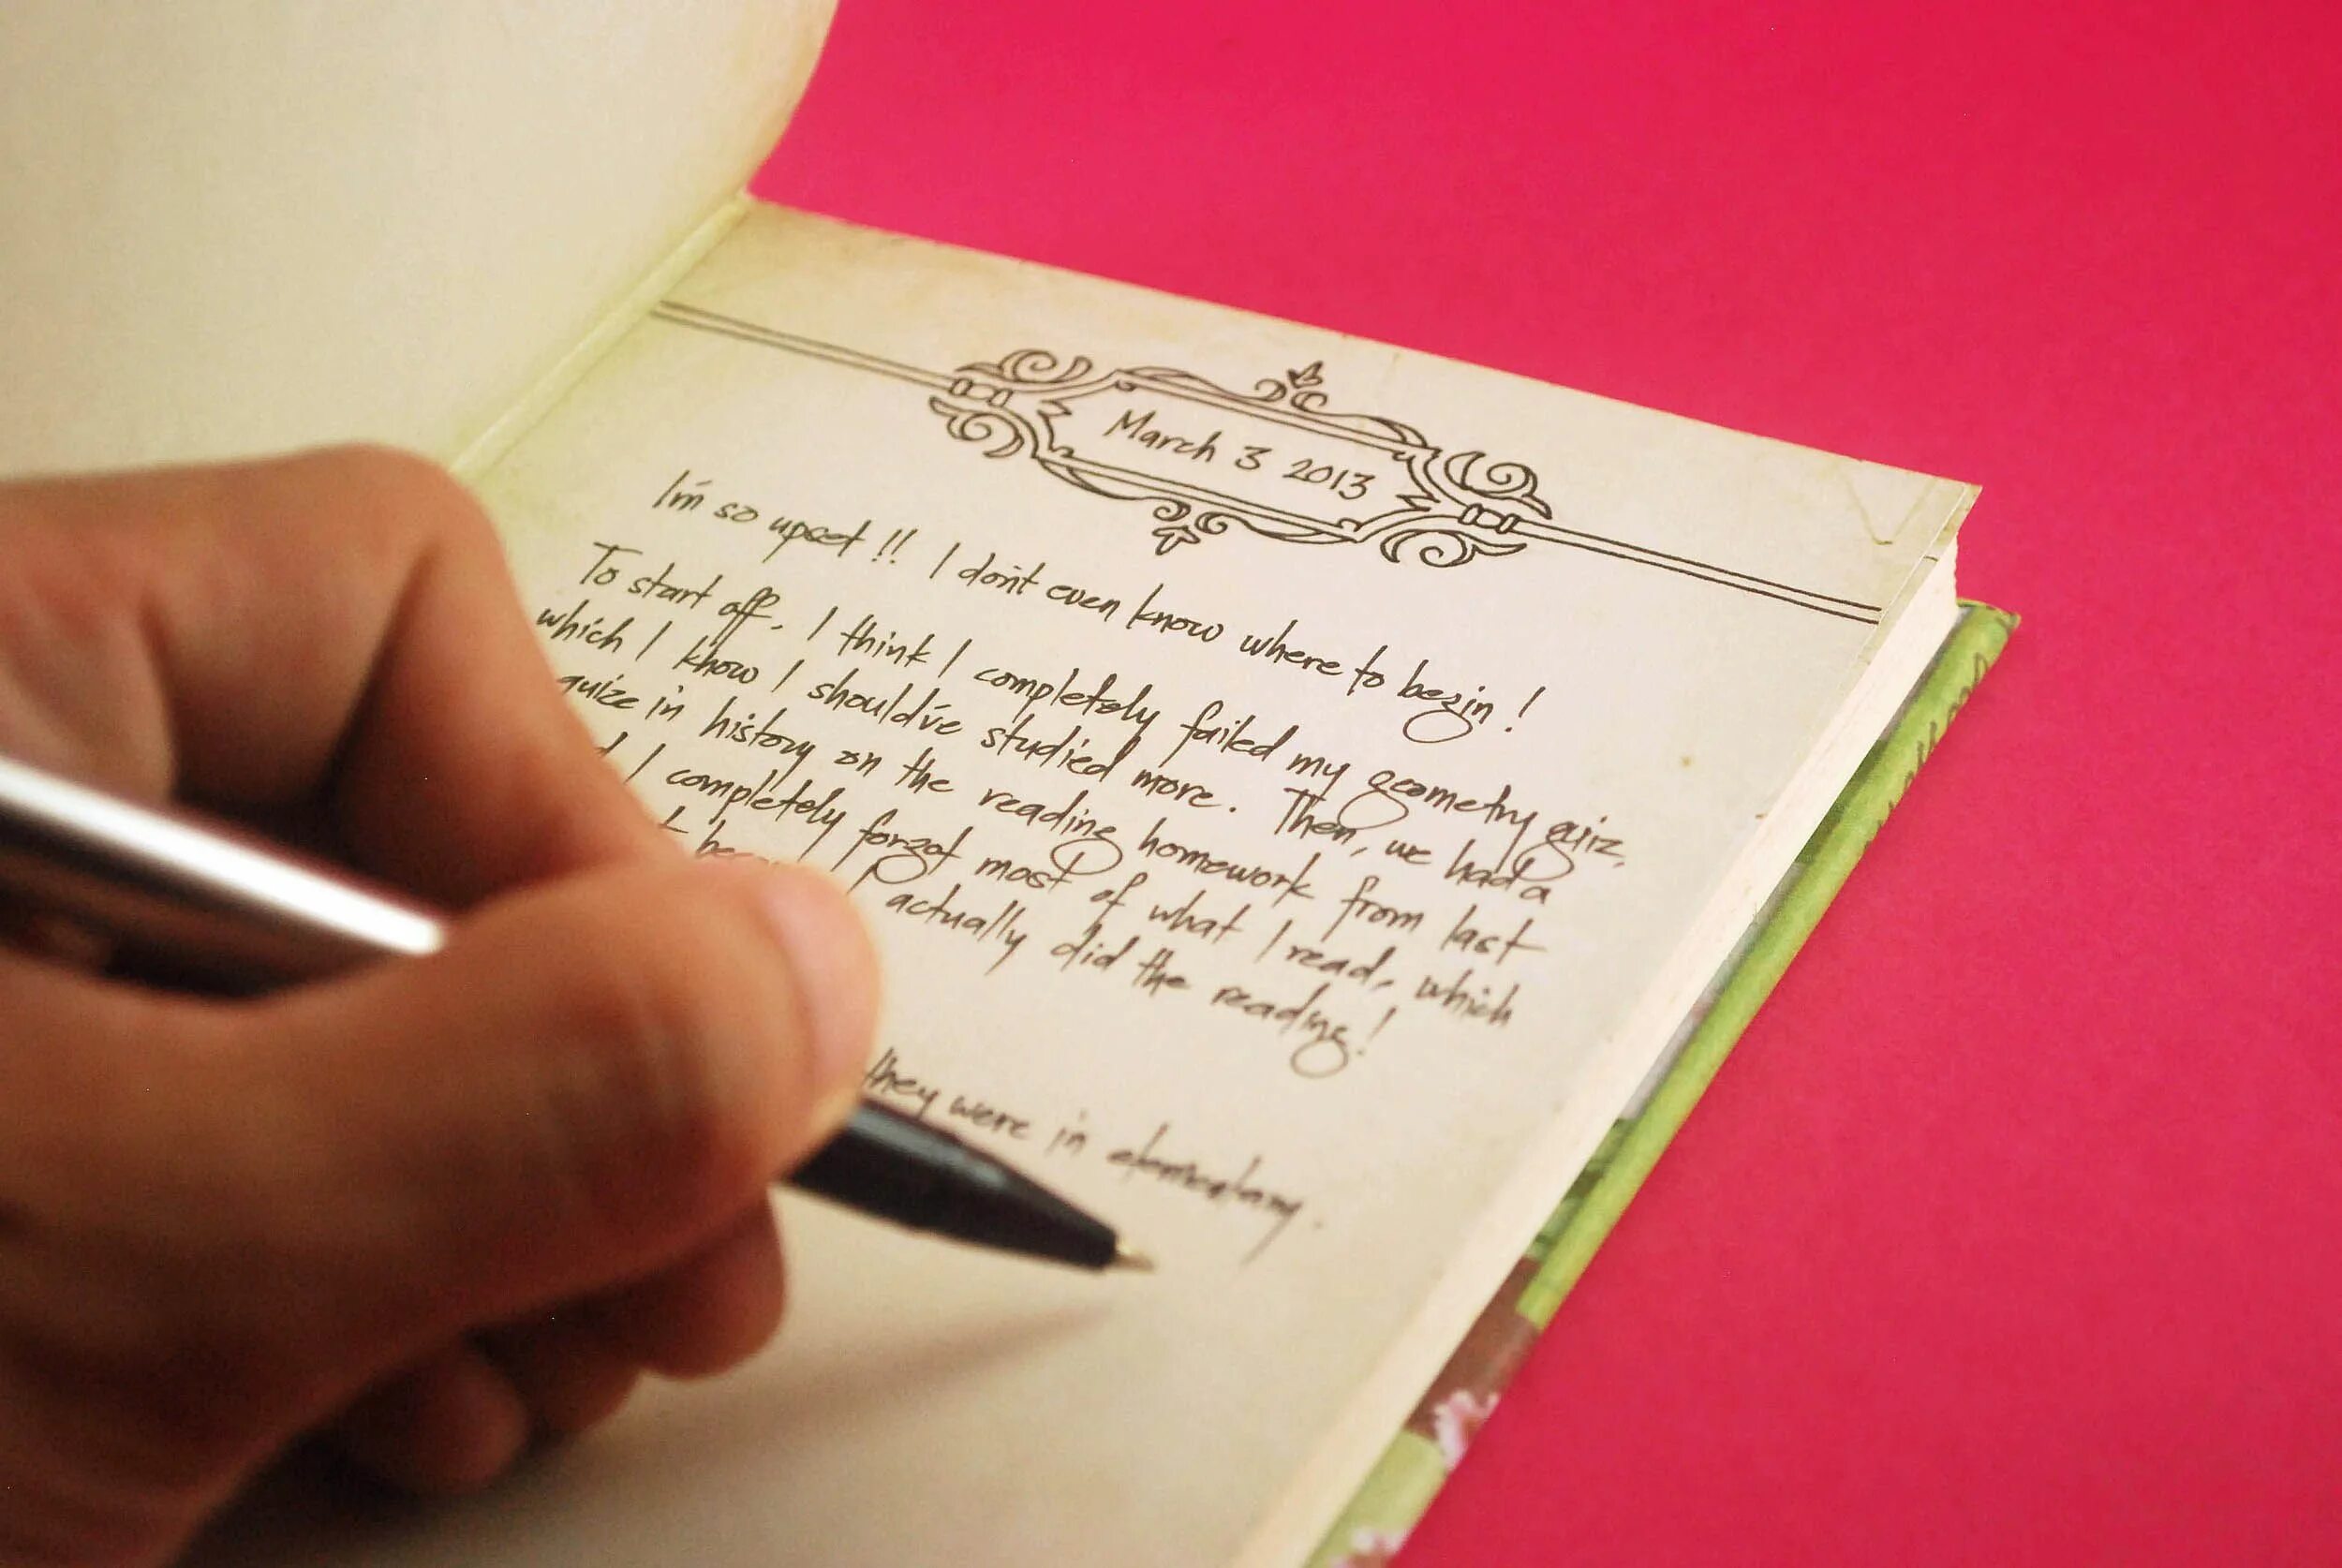 March 3 2013
I'm so upset!! I don't even know where to begin!
To start off, I think I completely failed my geometry quiz,
which I know I should've studied more. Then, we had a
quize in history on the reading homework from last
I completely forgot most of what I read, which
I actually did the reading!
they were in elementary.